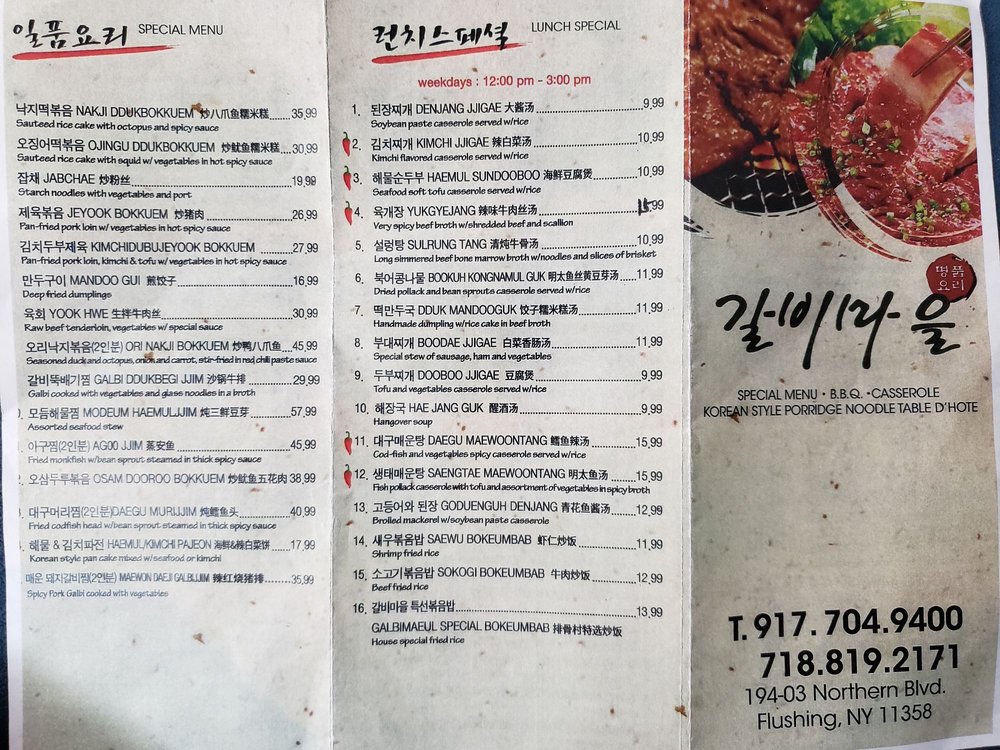 일품요리 SPECIAL MENU
낙지떡볶음 NAKJI DDUKBOKKUEM 炒八爪鱼糯米糕 35,99
Sauteed rice cake with octopus and spicy sauce
오징어떡볶음 OJINGU DDUKBOKKUEM 炒鱿鱼糯米糕 30,99
Sauteed rice cake with squid w/ vegetables in hot spicy sauce
잡채 JABCHAE 炒粉丝 19,99
Starch noodles with vegetables and port
제육볶음 JEYOOK BOKKUEM 炒猪肉 26,99
Pan-fried pork loin w/ vegetables in hot spicy sauce
김치두부제육 KIMCHIDUBUJEYOOK BOKKUEM 27,99
Pan-fried pork loin, kimchi & tofu w/ vegetables in hot spicy sauce
만두구이 MANDOO GUI 煎饺子 16,99
Deep fried dumplings
육회 YOOK HWE 生拌牛肉丝 30,99
Raw beef tenderloin, vegetables w/ special sauce
오리낙지볶음(2인분) ORI NAKJI BOKKUEM 炒鸭八爪鱼 45,99
Seasoned duck and octopus, onion and carrot, stir-fried in red chili paste sauce
갈비뚝배기찜 GALBI DDUKBEGI JJIM 沙锅牛排 29,99
Galbi cooked with vegetables and glass noodles in a broth
모듬해물찜 MODEUM HAEMULJJIM 炖三鲜豆芽 57,99
Assorted seafood stew
아구찜(2인분) AGOO JJIM 蒸安鱼 45,99
Fried monkfish w/bean sprout steamed in thick spicy sauce
오삼두루볶음 OSAM DOOROO BOKKUEM 炒鱿鱼五花肉 38,99
대구머리찜(2인분)DAEGU MURIJJIM 炖鳕鱼头 40,99
Fried codfish head w/bean sprout steamed in thick spicy sauce
해물 & 김치파전 HAEMUL/KIMCHI PAJEON 海鲜&辣白菜饼 17,99
Korean style pan cake mixed w/seafood or kimchi
매운 돼지갈비찜(2인분) MAEWON DAEJI GALBIJJIM 辣红烧猪排 35,99
Spicy Pork Galbi cooked with vegetables
런치스페셜 LUNCH SPECIAL
weekdays : 12:00 pm - 3:00 pm
1. 된장찌개 DENJANG JJIGAE 大酱汤 9,99
Soybean paste casserole served w/rice
2. 김치찌개 KIMCHI JJIGAE 辣白菜汤 10,99
Kimchi flavored casserole served w/rice
3. 해물순두부 HAEMUL SUNDOOBOO 海鲜豆腐煲 10,99
Seafood soft tofu casserole served w/rice
4. 육개장 YUKGYEJANG 辣味牛肉丝汤 15,99
Very spicy beef broth w/shredded beef and scallion
5. 설렁탕 SULRUNG TANG 清炖牛骨汤 10,99
Long simmered beef bone marrow broth w/noodles and slices of brisket
6. 북어콩나물 BOOKUH KONGNAMUL GUK 明太鱼丝黄豆芽汤 11,99
Dried pollack and bean sprouts casserole served w/rice
7. 떡만두국 DDUK MANDOOGUK 饺子糯米糕汤 11,99
Handmade dumpling w/rice cake in beef broth
8. 부대찌개 BOODAE JJIGAE 白菜香肠汤 11,99
Special stew of sausage, ham and vegetables
9. 두부찌개 DOOBOO JJIGAE 豆腐煲 9,99
Tofu and vegetables casserole served w/rice
10. 해장국 HAE JANG GUK 醒酒汤 9,99
Hangover soup
11. 대구매운탕 DAEGU MAEWOONTANG 鳕鱼辣汤 15,99
Cod-fish and vegetables spicy casserole served w/rice
12. 생태매운탕 SAENGTAE MAEWOONTANG 明太鱼汤 15,99
Fish pollack casserole with tofu and assortment of vegetables in spicy broth
13. 고등어와 된장 GODUENGUH DENJANG 青花鱼酱汤 12,99
Broiled mackerel w/soybean paste casserole
14. 새우볶음밥 SAEWU BOKEUMBAB 虾仁炒饭 11,99
Shrimp fried rice
15. 소고기볶음밥 SOKOGI BOKEUMBAB 牛肉炒饭 12,99
Beef fried rice
16. 갈비마을 특선볶음밥 13,99
GALBIMAEUL SPECIAL BOKEUMBAB 排骨村特选炒饭
House special fried rice
명품
요리
갈비마을
SPECIAL MENU • B.B.Q. • CASSEROLE
KOREAN STYLE PORRIDGE NOODLE TABLE D'HOTE
T. 917. 704.9400
718.819.2171
194-03 Northern Blvd.
Flushing, NY 11358